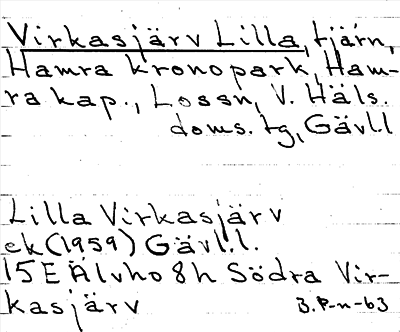 Virkasjärv Lilla, tjärn,
Hamra kronopark, Ham-
ra kap., Lossn, V. Häls.
doms. tg, Gävl.l
Lilla Virkasjärv
ek (1959) Gävl.l.
15E Älvho 8h Södra Vir-
kasjärv B.P-n-63